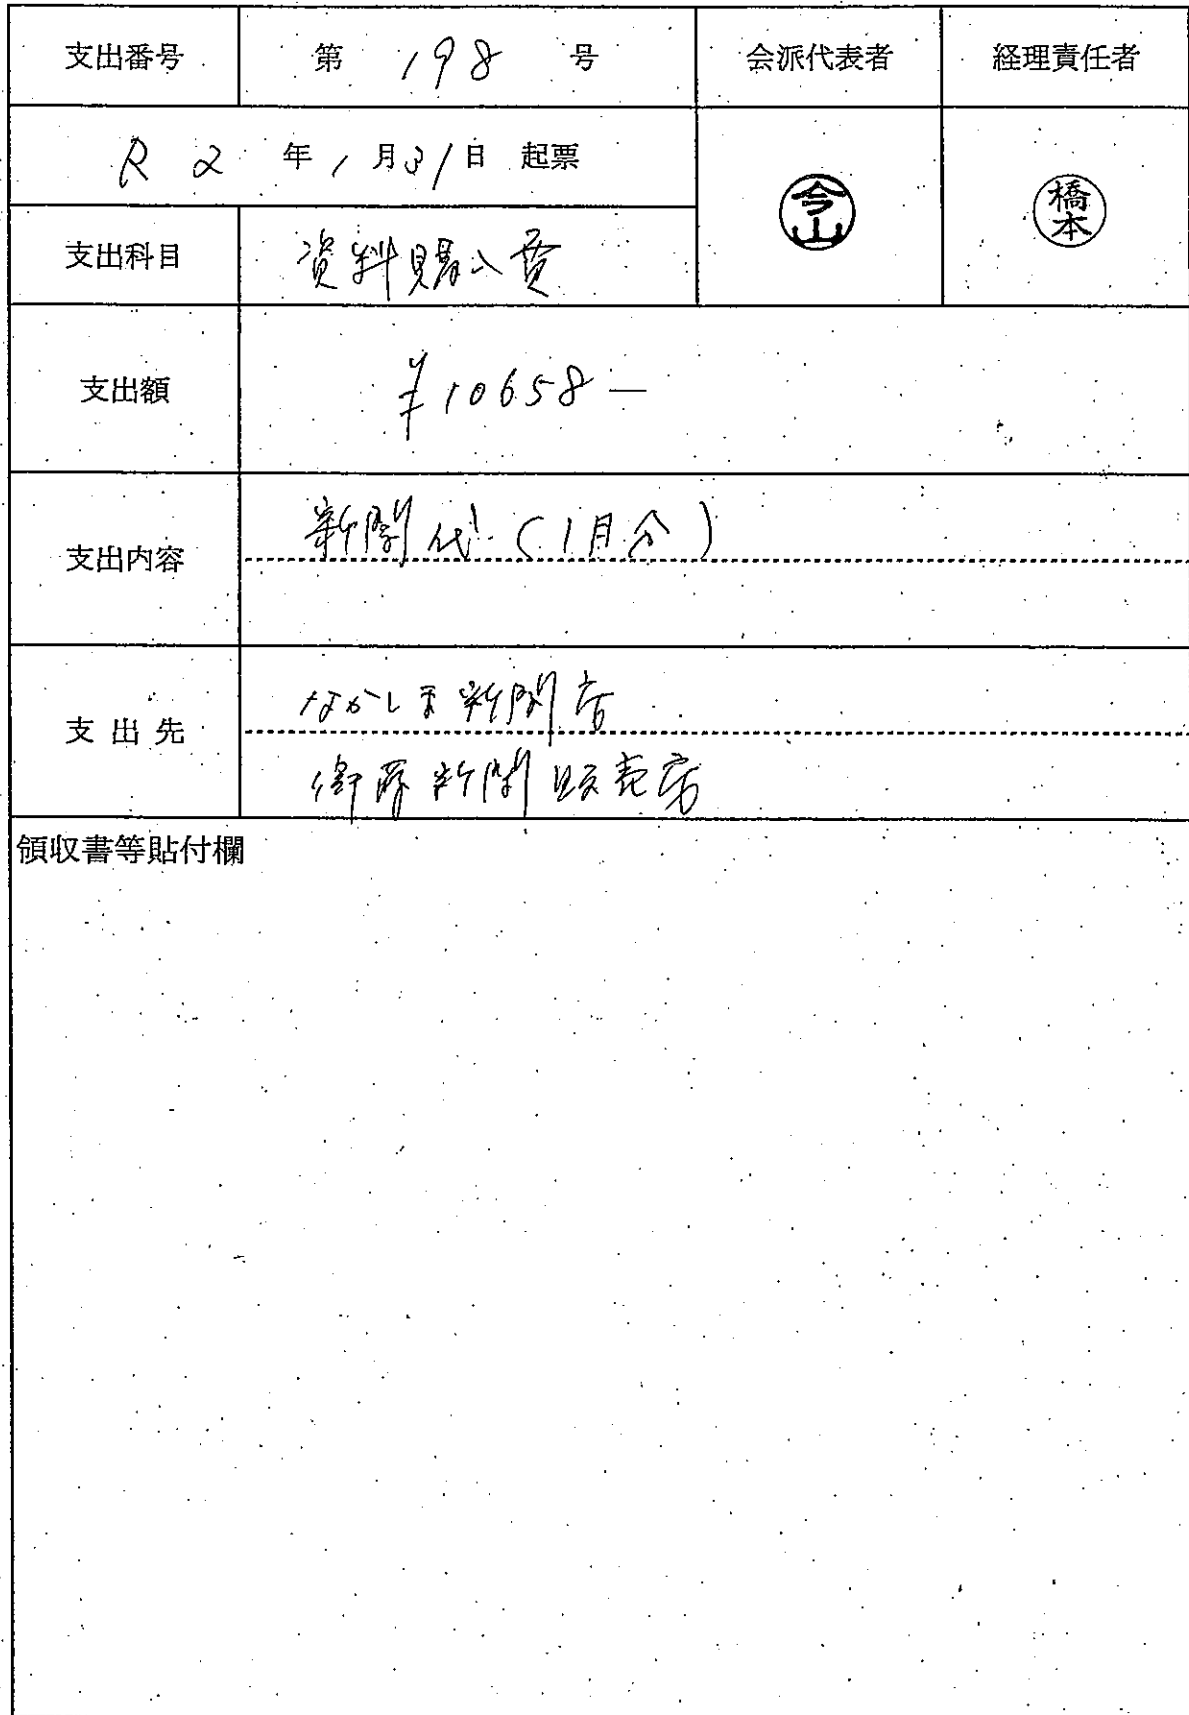 支出番号 第 198 号 会派代表者 経理責任者
R 2 年 1 月 31 日 起票
今山 橋本
支出科目 資料購入費
支出額 ¥10658-
支出内容 新聞代(1月分)
支出先 ながしま新聞店
衛藤新聞販売店
領収書等貼付欄